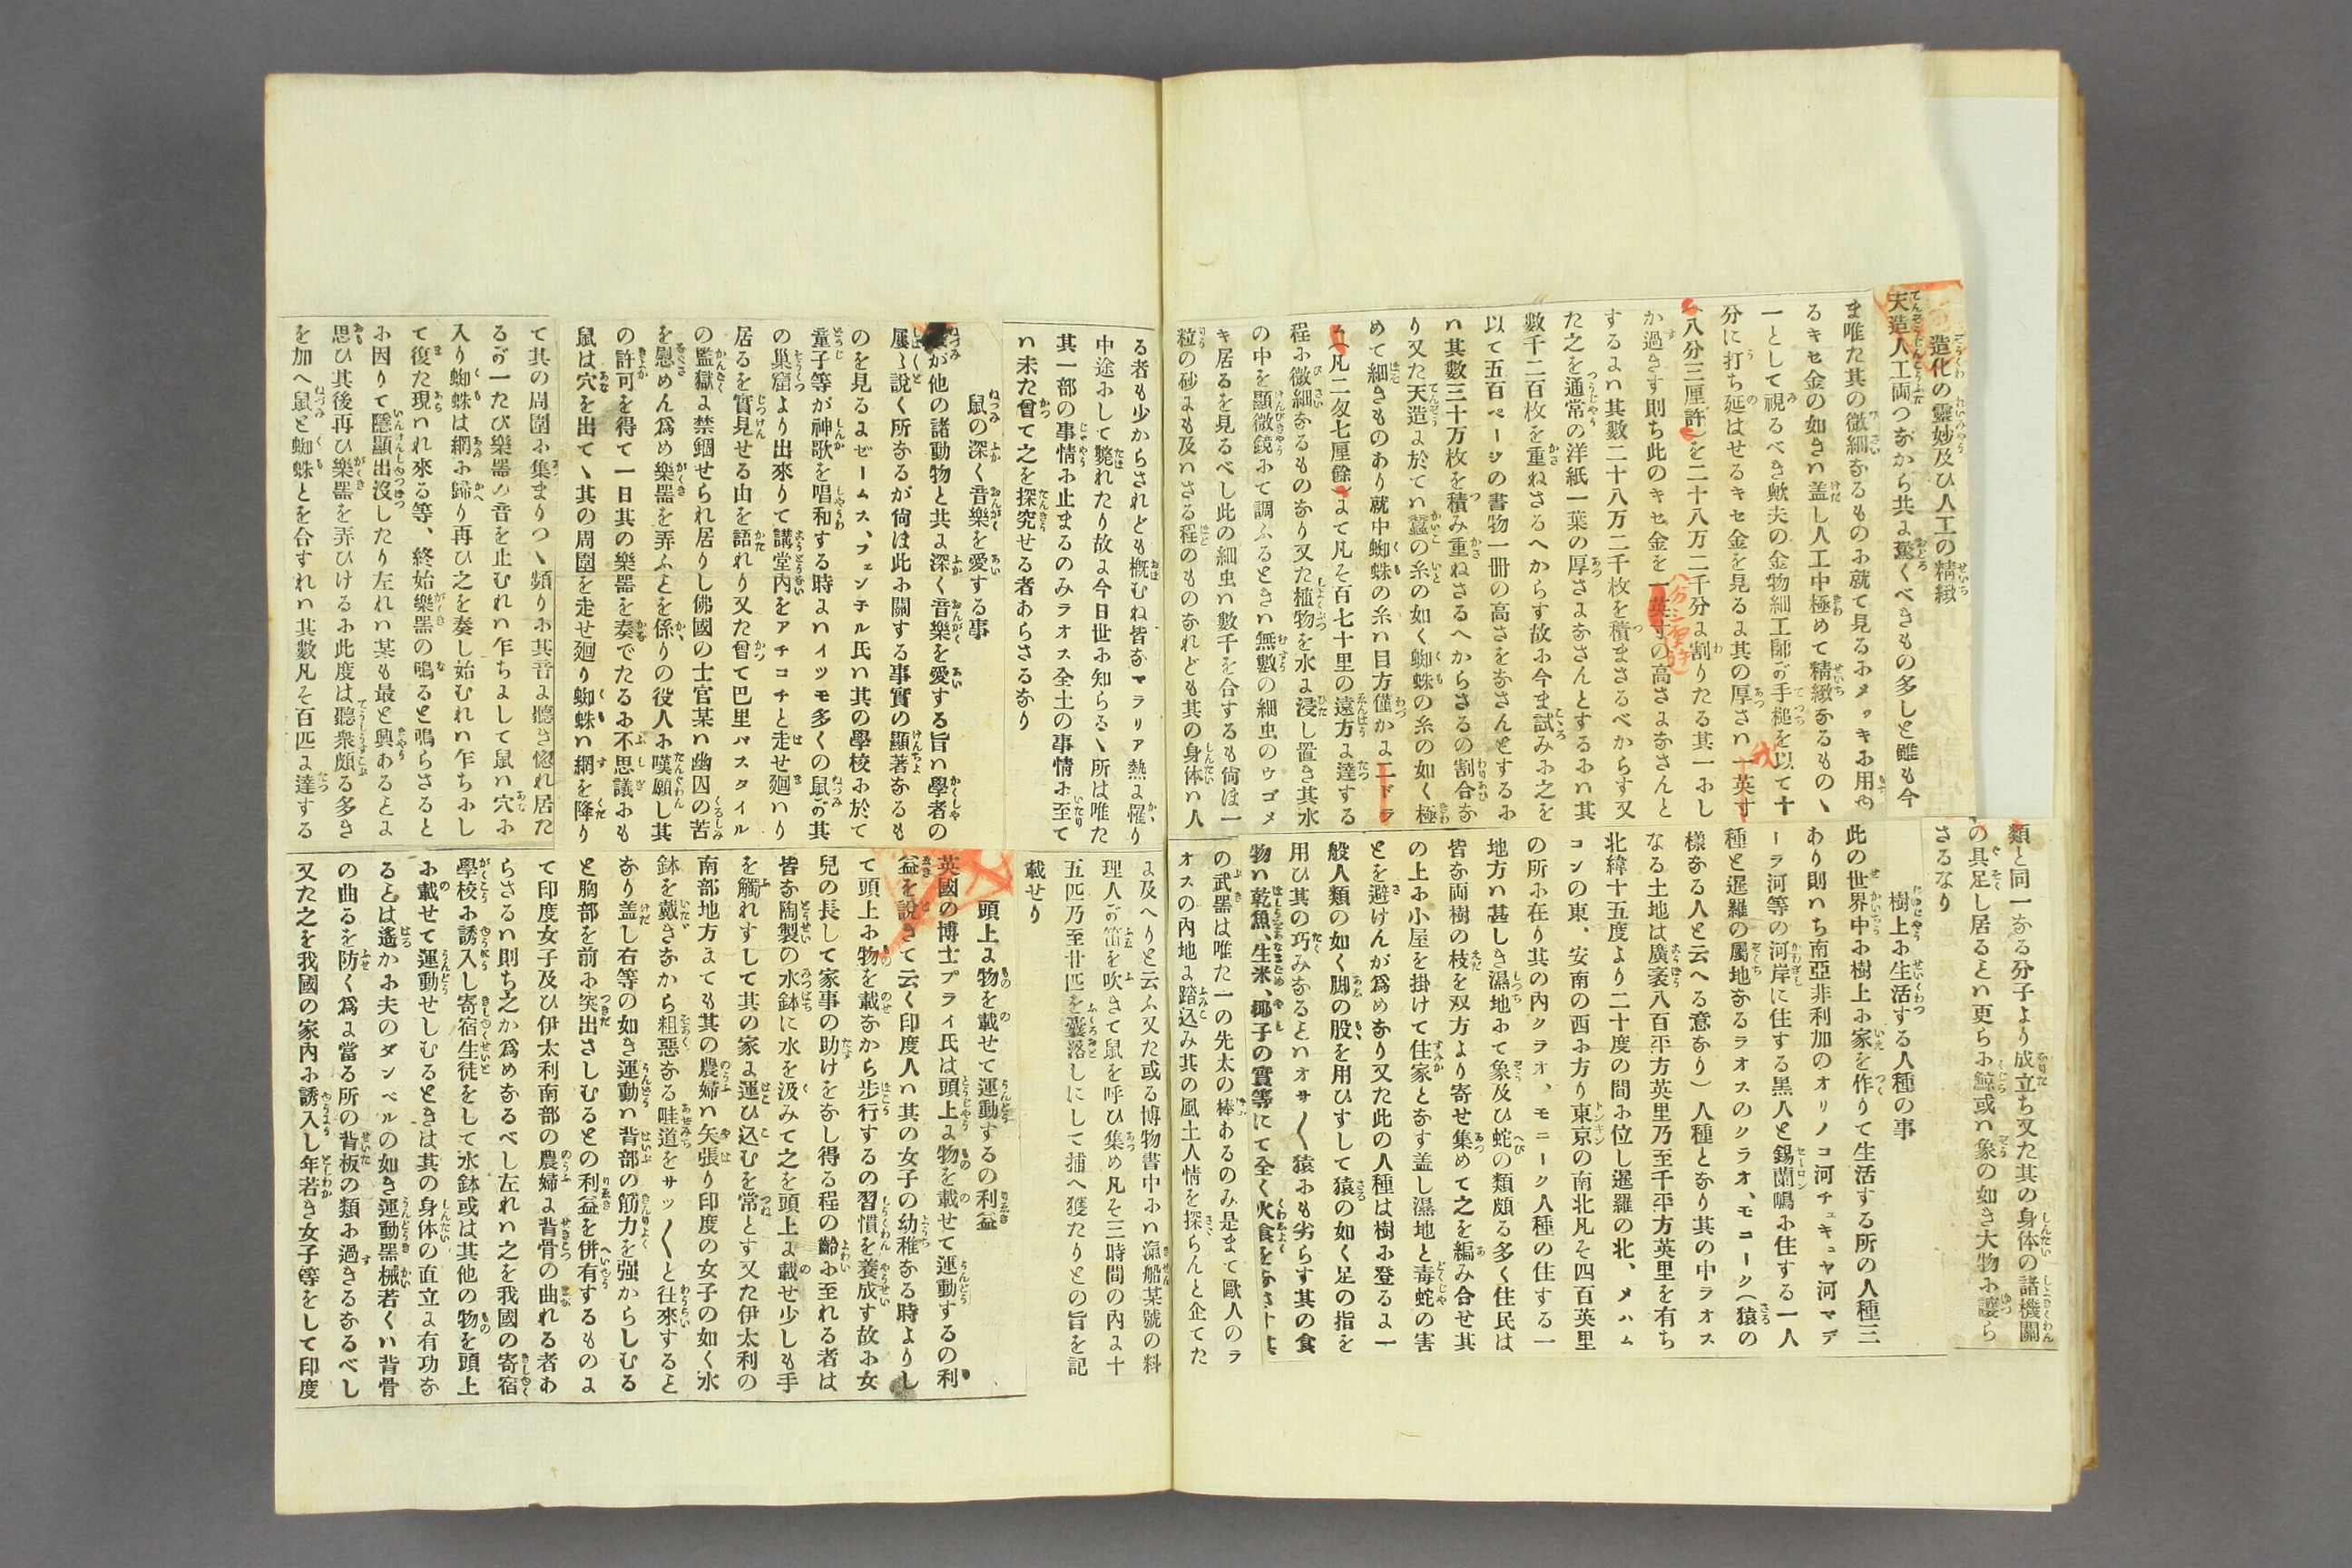 造化の靈妙及ひ人工の精緻
天造人工両つながから共に驚くべきもの多しと雖も今
ま唯た其の微細なるものに就て見るにメッキに用ゆ
るキセ金の如きハ盖し人工中極めて精緻なるものゝ
一として視るべき歟夫の金物細工師が手槌を以て十
分に打ち延はせるキセ金を見るに其の厚さハ一英寸
(八分三厘許)を二十八万二千分に割りたる其一にし
か過きす則ち此のキセ金を一英寸の高さになさんと
八分三厘許
するにハ其數二十八万二千枚を積まさるべからす又
た之を通常の洋紙一葉の厚さになさんとするにハ其
數千二百枚を重ねさるへからす故に今ま試みに之を
以て五百ページの書物一冊の高さをなさんとするに
ハ其數三十万枚を積み重ねさるへからさるの割合な
り又た天造に於てハ蠶の糸の如く蜘蛛の糸の如く極
めて細きものあり就中蜘蛛の糸ハ目方僅かに二ドラ
ム(凡二匁七厘餘)にて凡そ百七十里の遠方に達する
程に微細なるものなり又た植物を水に浸し置き其水
の中を顯微鏡にて調ふるときハ無數の細虫のウゴメ
キ居るを見るべし此の細虫ハ數千を合するも尙ほ一
粒の砂にも及ハさる程のものなれども其の身体ハ人
類と同一なる分子より成立ち又た其の身体の諸機關
の具足し居るとハ更らに鯨或ハ象の如き大物に讓ら
さるなり
樹上に生活する人種の事
此の世界中に樹上に家を作りて生活する所の人種三
あり則ハち南亞非利加のオリノコ河チュキュヤ河マデ
ーラ河等の河岸に住する黑人と錫蘭嶋に住する一人
種と暹羅の屬地なるラオスのクラオ、モコーク(猿の
樣なる人と云へる意なり)人種となり其の中ラオス
なる土地は廣袤八百平方英里乃至千平方英里を有ち
北緯十五度より二十度の間に位し暹羅の北、メハム
コンの東、安南の西に方り東京の南北凡そ四百英里
の所に在り其の内クラオ、モニーク人種の住する一
地方ハ甚しき濕地にて象及ひ蛇の類頗る多く住民は
皆な両樹の枝を双方より寄せ集めて之を編み合せ其
の上に小屋を掛けて住家となす盖し濕地と毒蛇の害
とを避けんが爲めなり又た此の人種は樹に登るに一
般人類の如く脚の股を用ひすして猿の如く足の指を
用ひ其の巧みなるとハオサ〱猿にも劣らす其の食
物ハ乾魚、生米、椰子の實等にて全く火食をなさす其
の武器は唯た一の先太の棒あるのみ是まて歐人のラ
オスの内地に踏込み其の風土人情を探らんと企てた
る者も少からされども概むね皆なマラリア熱に罹り
中途にして斃れたり故に今日世に知らるゝ所は唯た
其一部の事情に止まるのみラオス全土の事情に至て
ハ未た曾て之を探究せる者あらさるなり
鼠の深く音樂を愛する事
が他の諸動物と共に深く音樂を愛する旨ハ學者の
屢〻說く所なるが尙ほ此に關する事實の顯著なるも
のを見るにゼームス、フェンテル氏ハ其の學校に於て
童子等が神歌を唱和する時にハイツモ多くの鼠が其
の巢窟より出來りて講堂內をアチコチと走せ廻ハり
居るを實見せる由を語れり又た曾て巴里バスタイル
の監獄に禁錮せられ居りし佛國の士官某ハ幽囚の苦
を慰めん爲め樂器を弄ふとを係りの役人に嘆願し其
の許可を得て一日其の樂器を奏でたるに不思議にも
鼠は穴を出てゝ其の周圍を走せ廻り蜘蛛ハ網を降り
て其の周圍に集まりつゝ頻りに其音に聽き惚れ居た
るが一たび樂器の音を止むれハ乍ちにして鼠ハ穴に
入り蜘蛛は網に歸り再ひ之を奏し始むれハ乍ちにし
て復た現ハれ來る等、終始樂器の鳴ると鳴らさると
に因りて隱顯出沒したり左れハ某も最と興あるとに
思ひ其後再ひ樂器を弄ひけるに此度は聽衆頗る多き
を加へ鼠と蜘蛛とを合すれハ其數凡そ百匹に達する
に及へりと云ふ又た或る博物書中にハ滊船某號の料
理人が笛を吹きて鼠を呼ひ集め凡そ三時間の內に十
五匹乃至廿匹を囊落しにして捕へ獲たりとの旨を記
載せり
頭上に物を載せて運動するの利益
英國の博士プライ氏は頭上に物を載せて運動するの利
益を說きて云く印度人ハ其の女子の幼稚なる時よりし
て頭上に物を載せなから步行するの習慣を養成す故に女
兒の長して家事の助けをなし得る程の齡に至れる者は
皆な陶製の水鉢に水を汲みて之を頭上に載せ少しも手
を觸れすして其の家に運ひ込むを常とす又た伊太利の
南部地方にても其の農婦ハ矢張り印度の女子の如く水
鉢を戴きなから粗惡なる畦道をサッ〱と往來すると
なり盖し右等の如き運動ハ背部の筋力を强からしむる
と胸部を前に突出さしむるとの利益を併有するものに
て印度女子及ひ伊太利南部の農婦に背骨の曲れる者あ
らさるハ則ち之か爲めなるべし左れハ之を我國の寄宿
學校に誘入し寄宿生徒をして水鉢或は其他の物を頭上
に載せて運動せしむるときは其の身体の直立に有功な
るとは遙かに夫のダンベルの如き運動器械若くハ背骨
の曲るを防く爲に當る所の背板の類に過きさるなるべし
又た之を我國の家內に誘入し年若き女子等をして印度